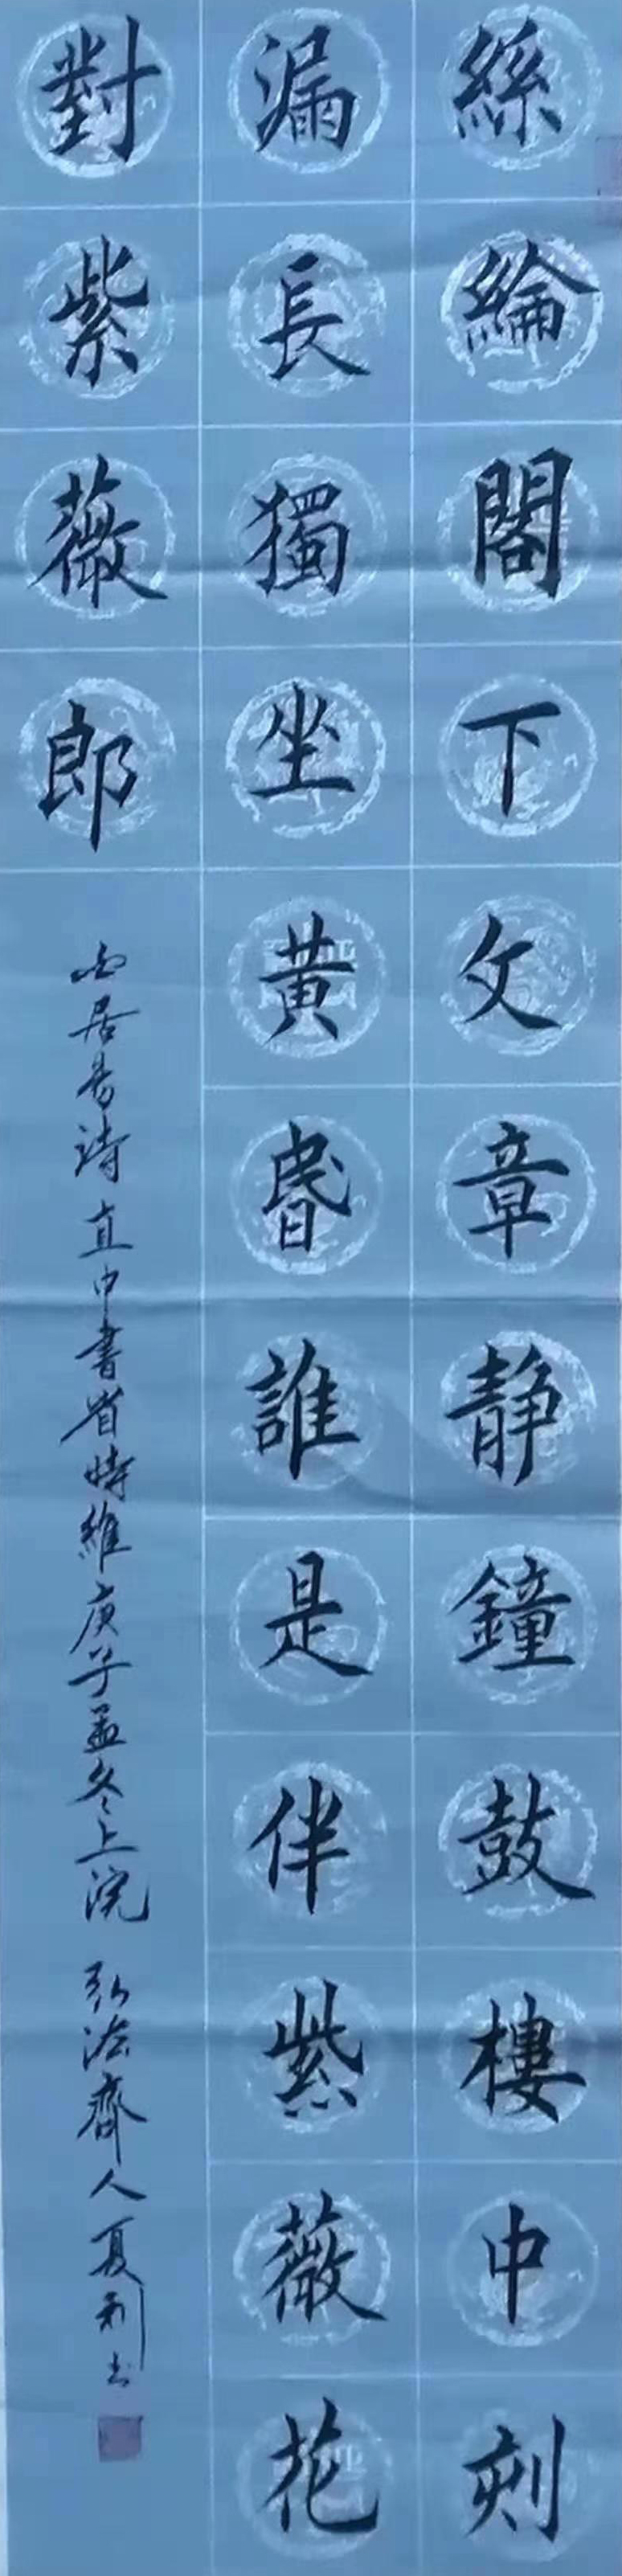 絲綸閣下文章静鐘鼓樓中刻
漏長獨坐黄昬誰是伴紫薇花
對紫薇郎
白居易詩直中書省時維庚子孟冬上浣 弘法齋人夏利书